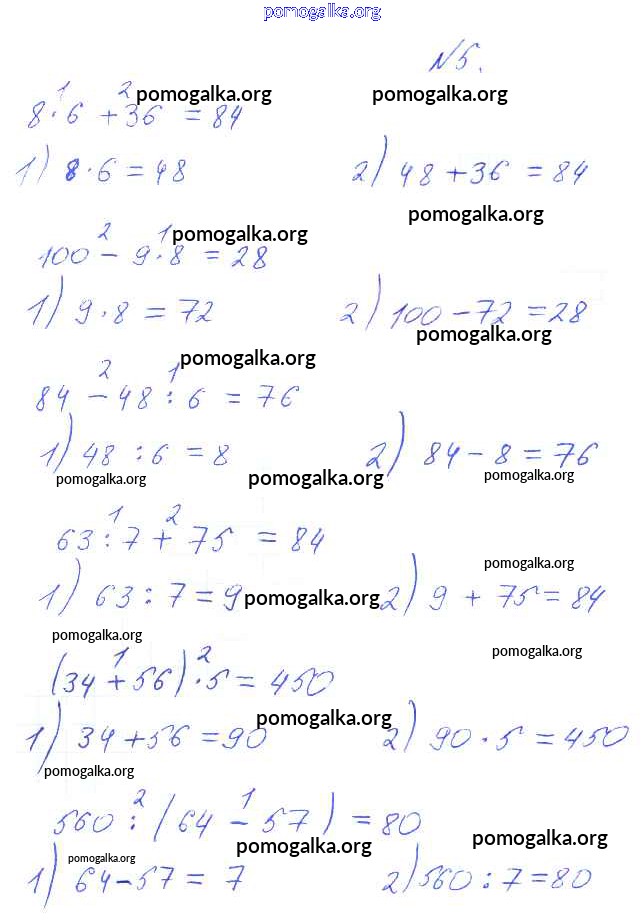 pomogalka.org
№5.
1 2 pomogalka.org pomogalka.org
8·6 +36 = 84
1) 8·6 = 48 2) 48+36 = 84
pomogalka.org
2 1 pomogalka.org
100 - 9·8 = 28
1) 9·8 = 72 2) 100-72=28
pomogalka.org
pomogalka.org
2 1
84 - 48 : 6 = 76
1) 48 : 6 = 8 2) 84 - 8 = 76
pomogalka.org pomogalka.org pomogalka.org
1 2
63 : 7 + 75 = 84
pomogalka.org
1) 63 : 7 = 9 pomogalka.org 2) 9 + 75 = 84
pomogalka.org
pomogalka.org
1 2
(34 + 56)·5 = 450
pomogalka.org
1) 34+56 = 90 2) 90·5 = 450
pomogalka.org
2 1
560 : (64 - 57) = 80
pomogalka.org pomogalka.org
pomogalka.org
1) 64-57 = 7 2) 560 : 7 = 80